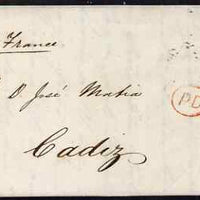 France
D. José Matia
P.D
Cadiz